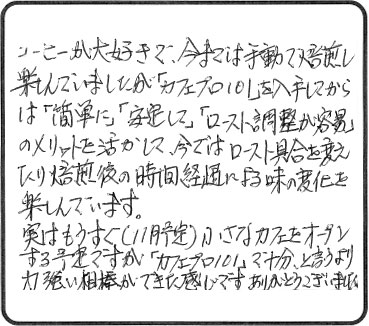 コーヒーが大好きで、今までは手動で焙煎し
楽しんでいましたが「カフェプロ101」を入手してから
は「簡単に」「安定して」「ロースト調整が容易」
のメリットを活かして、今ではロースト具合を変え
たり焙煎後の時間経過による味の変化を
楽しんでいます。
実はもうすぐ(11月予定)小さなカフェをオープン
する予定ですが「カフェプロ101」で十分、と言うより
力強い相棒ができた感じです ありがとうございました。